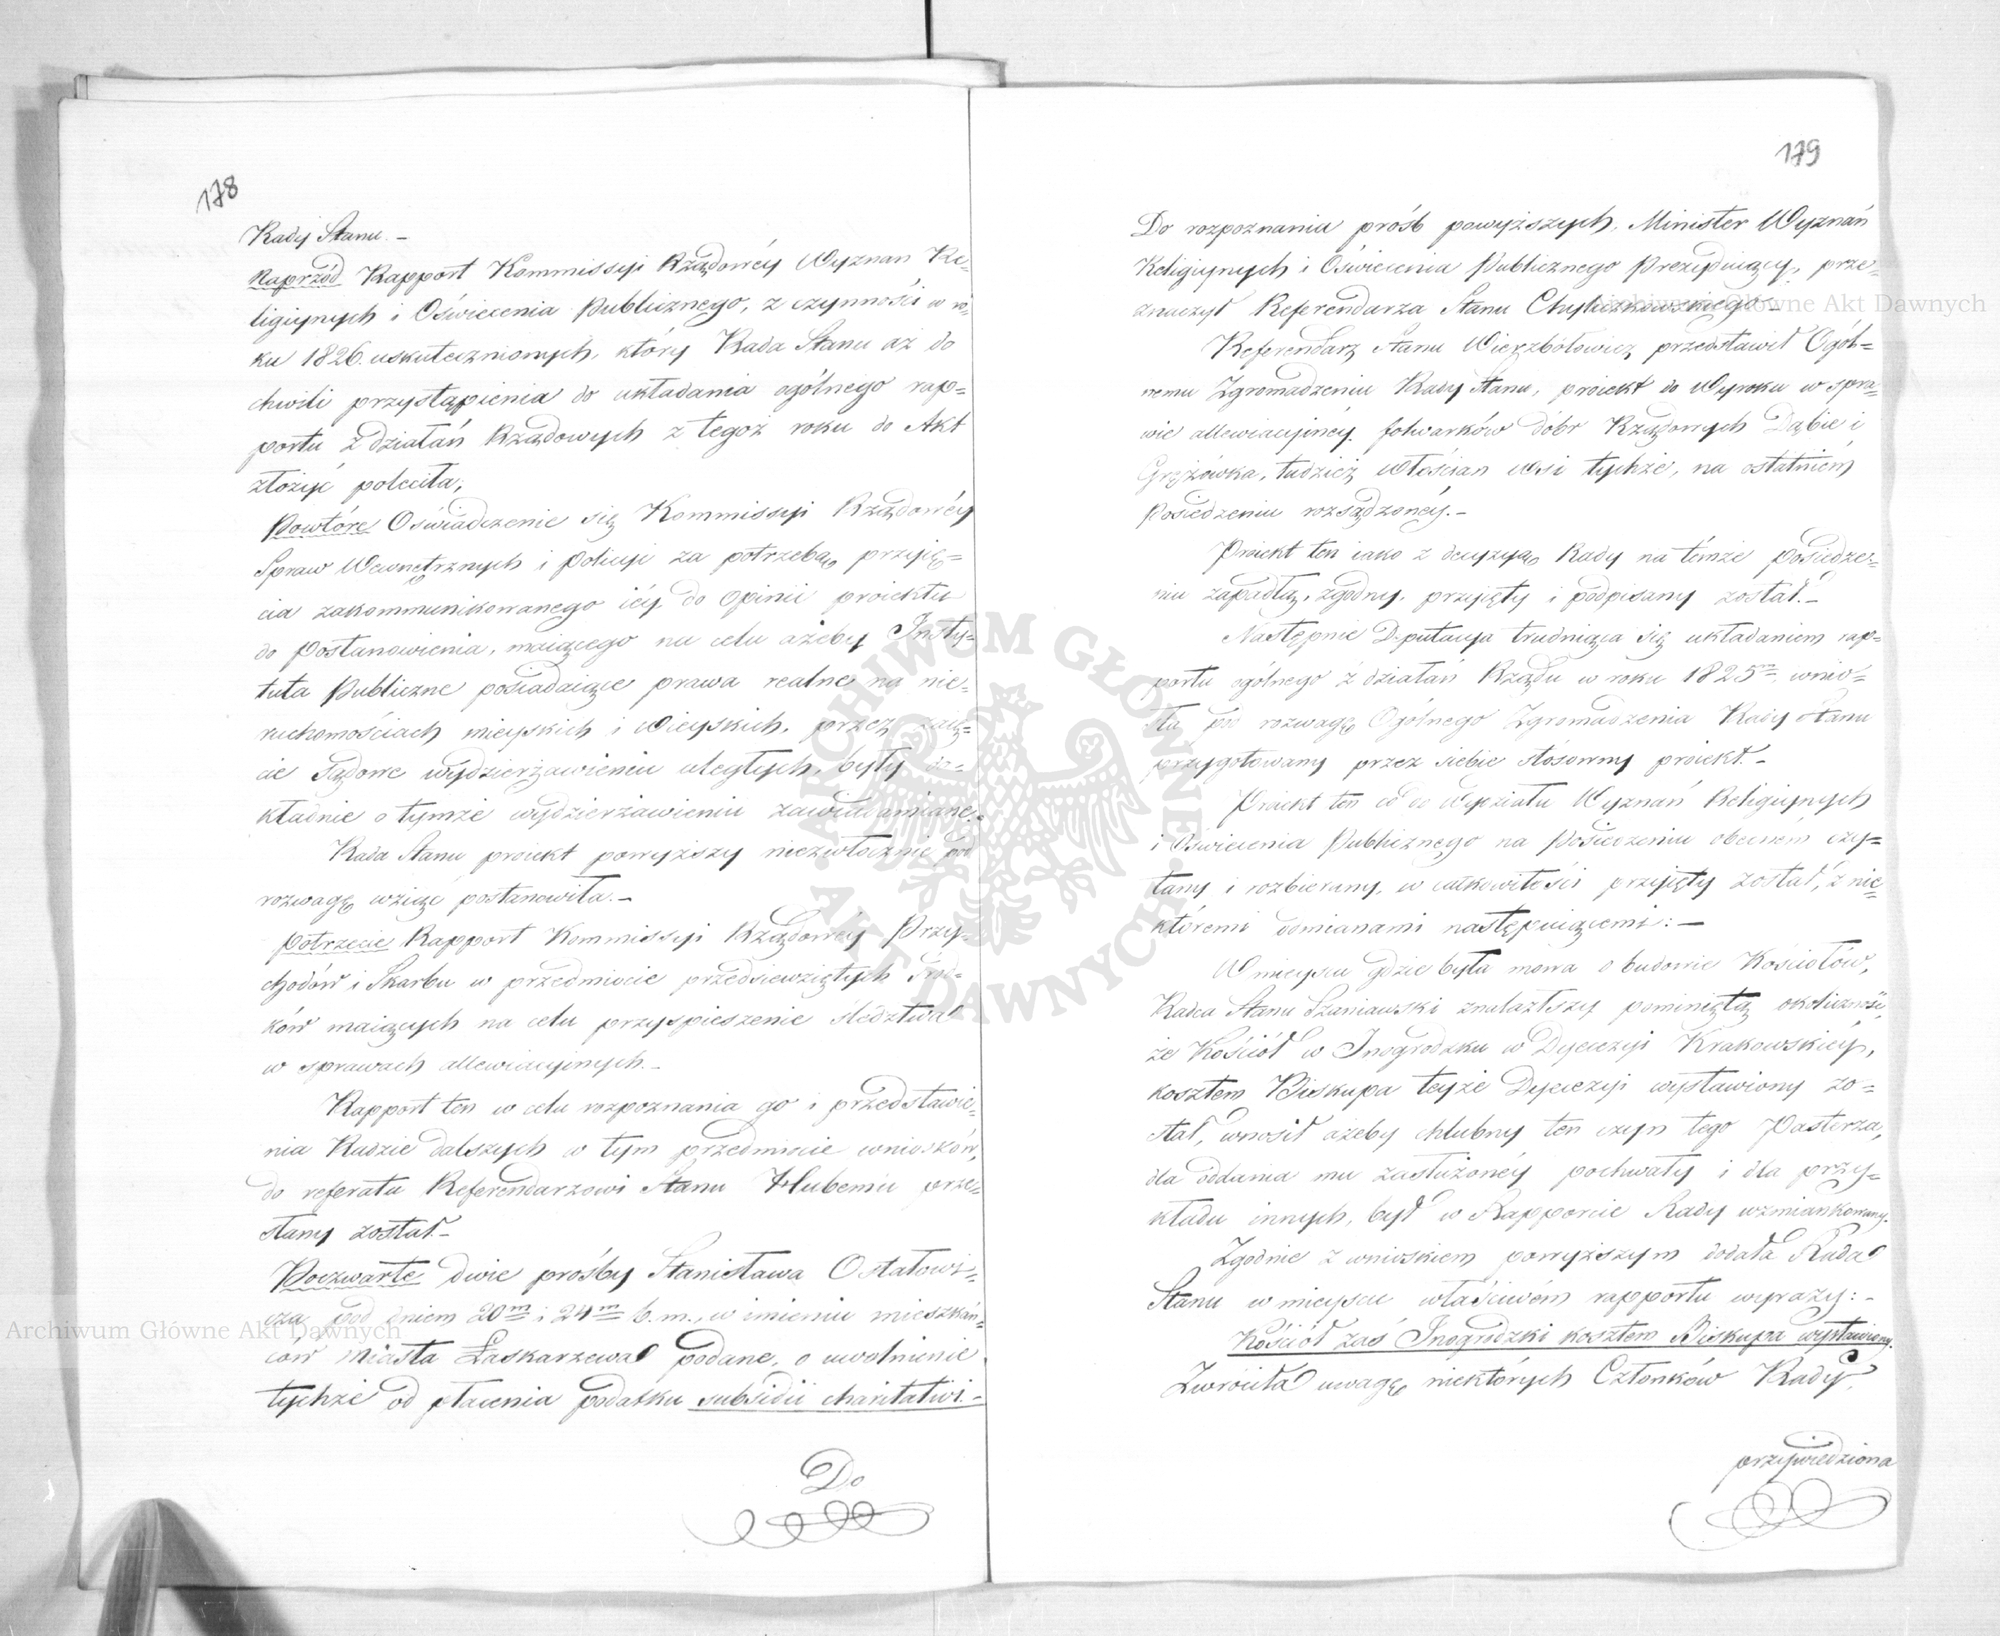 178
Rady Stanu. –
Naprzód Rapport Kommissyi Rządowéy Wyznań Re-
ligiynych i Oświecenia Publicznego, z czynności w ro-
ku 1826. uskutecznionych, który Rada Stanu aż do
chwili przystąpienia do układania ogólnego rap-
portu z działań Rządowych z tegoż roku do Akt
złożyć poleciła,
Powtóre Oświadczenie się Kommissyi Rządowéy
Spraw Wewnętrznych i Policyi za potrzebą przyię-
cia zakommunikowanego iéy do opinii proiektu
do Postanowienia, maiącego na celu ażeby Insty-
tuta Publiczne posiadaiące prawa realne na nie-
ruchomościach mieyskich i Wieyskich, przez zaię-
cie Sądowe wydzierżawieniu uległych, były do-
kładnie o tymże wydzierżawieniu zawiadamiane.
Rada Stanu proiekt powyższy niezwłocznie pod
rozwagę wziąć postanowiła. –
Potrzecie Rapport Kommissyi Rządowéy Przy-
chodów i Skarbu w przedmiocie przedsiewziętych środ-
ków maiących na celu przyspieszenie śledztwa
w sprawach allewiacyinych. –
Rapport ten w celu rozpoznania go i przedstawie-
nia Radzie dalszych w tym przedmiocie wniosków,
do referatu Referendarzowi Stanu Hubemu prze-
słany został. –
Poczwarte dwie prośby Stanisława Ostałowi-
cza pod dniem 20m i 24m b.m., w imieniu mieszkań-
ców Miasta Łaskarzewa podane, o uwolnienie
tychże od płacenia podatku subsidii charitativi. –
Do
179
Do rozpoznania próśb powyższych, Minister Wyznań
Religiynych i Oświecenia Publicznego Prezyduiący, prze-
znaczył Referendarza Stanu Chyliczkowskiego –
Referendarz Stanu Wierzbołowicz przedstawił Ogól-
nemu Zgromadzeniu Rady Stanu, proiekt do Wyroku w spra-
wie allewiacyinéy folwarków dóbr Rządowych Dąbie i
Gręzówka, tudzież włościan wsi tychże, na ostatniém
Posiedzeniu rozsądzonéy. –
Proiekt ten iako z decyzyą Rady na témże Posiedze-
niu zapadłą, zgodny, przyięty i podpisany został. –
Następnie Deputacya trudniąca się układaniem rap-
portu ogólnego z działań Rządu w roku 1825m, wnio-
sła pod rozwagę Ogólnego Zgromadzenia Rady Stanu
przygotowany przez siebie stósowny proiekt. –
Proiekt ten co do Wydziału Wyznań Religiynych
i Oświecenia Publicznego na Posiedzeniu obecném czy-
tany i rozbierany, w całkowitości przyięty został, z nie-
któremi odmianami następuiącemi: –
W mieyscu gdzie była mowa o budowie Kościołów,
Radca Stanu Szaniawski znalazłszy pominiętą okoliczność,
że Kościół w Inogrodzku w Dyecezyi Krakowskiéy,
kosztem Biskupa teyże Dyecezyi wystawiony zo-
stał, wnosił ażeby chlubny ten czyn tego Pasterza,
dla oddania mu zasłużonéy pochwały i dla przy-
kładu innych, był w Rapporcie Rady wzmiankowany.
Zgodnie z wnioskiem powyższym dodała Rada
Stanu w mieyscu właściwém rapportu wyrazy: –
Kościół zaś Inogrodzki kosztem Biskupa wystawiony.
Zwróciła uwagę niektórych Członków Rady,
przywiedziona
ARCHIWUM GŁÓWNE AKT DAWNYCH
Archiwum Główne Akt Dawnych
Archiwum Główne Akt Dawnych